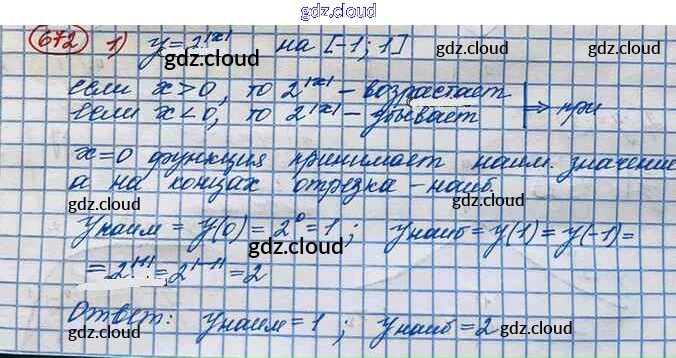 gdz.cloud
672 1) y = 2^|x| на [-1; 1]
gdz.cloud gdz.cloud
если x > 0, то 2^|x| – возрастает
если x < 0, то 2^|x| – убывает ⇒ при
gdz.cloud gdz.cloud
x = 0 функция принимает наим. значение
а на концах отрезка – наиб.
gdz.cloud gdz.cloud
yнаим = y(0) = 2^0 = 1; yнаиб = y(1) = y(-1) =
gdz.cloud gdz.cloud
= 2^|1| = 2^|-1| = 2
gdz.cloud gdz.cloud
Ответ: yнаим = 1; yнаиб = 2
gdz.cloud gdz.cloud